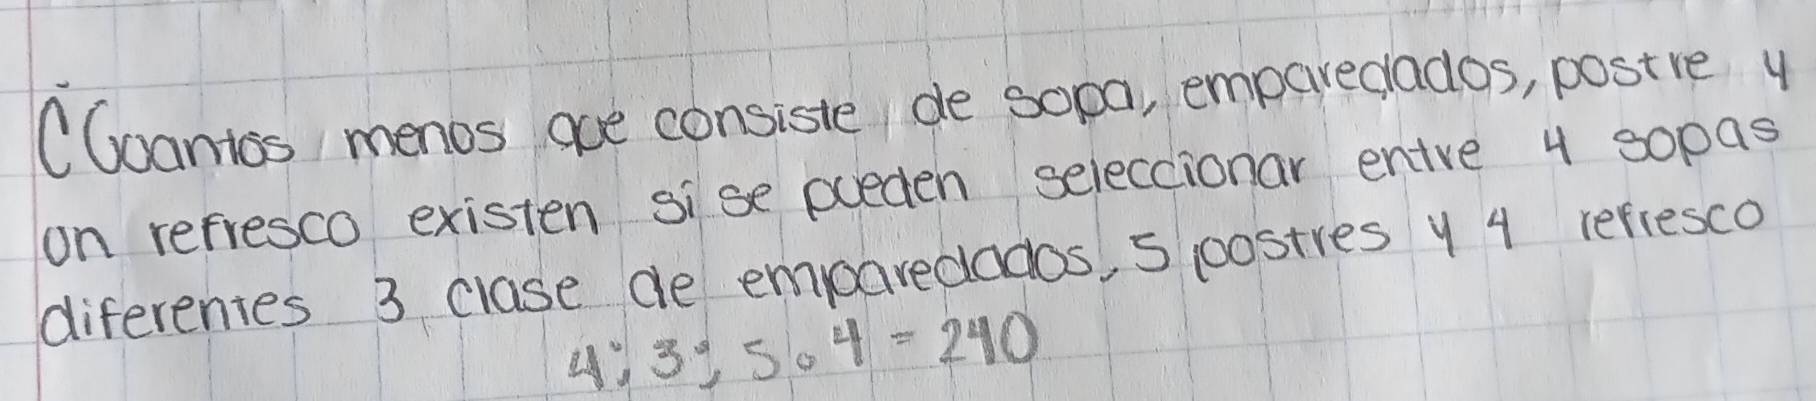 ¿Cuantos menos que consiste de sopa, emparedados, postre y
un refresco existen si se pueden seleccionar entre 4 sopas
diferentes 3 clase de emparedados, 5 postres y 4 refresco
4; 3; 5 . 4 = 240